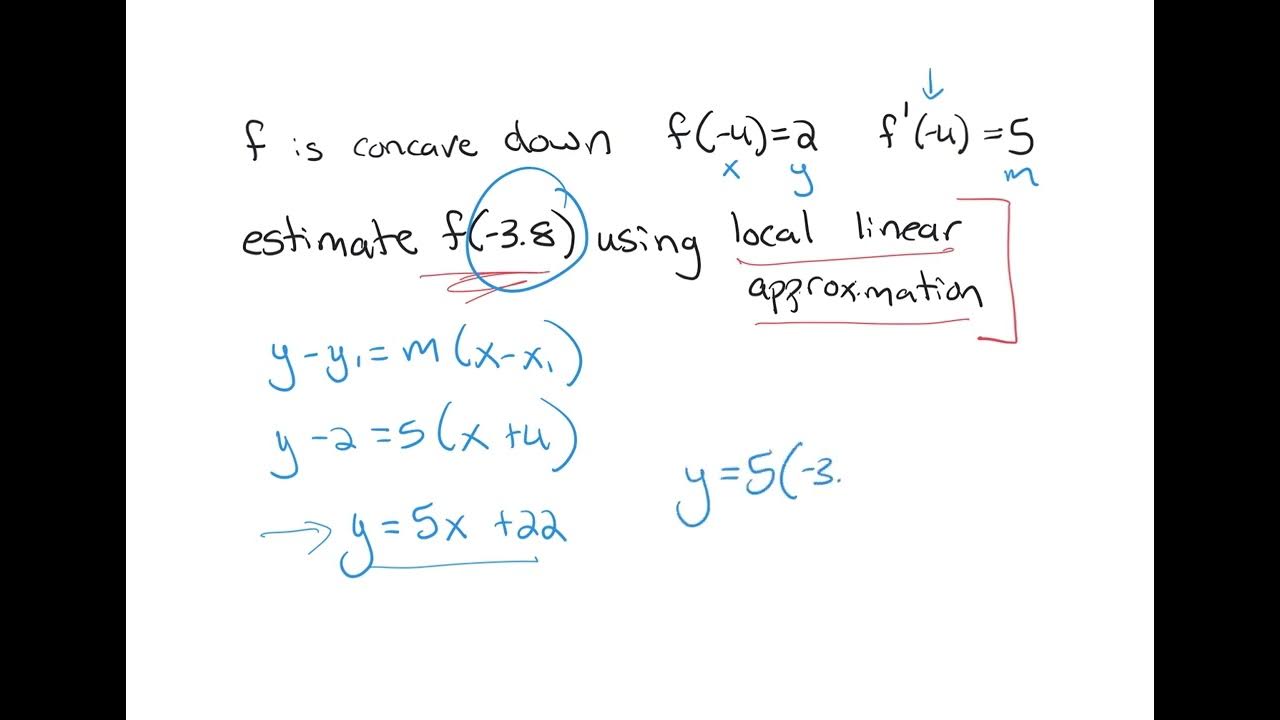 f is concave down f(-4)=2 f'(-4)=5
x y m
estimate f(-3.8) using local linear
approximation
y-y₁=m(x-x₁)
y-2=5(x+4)
y=5(-3.
→ y=5x+22